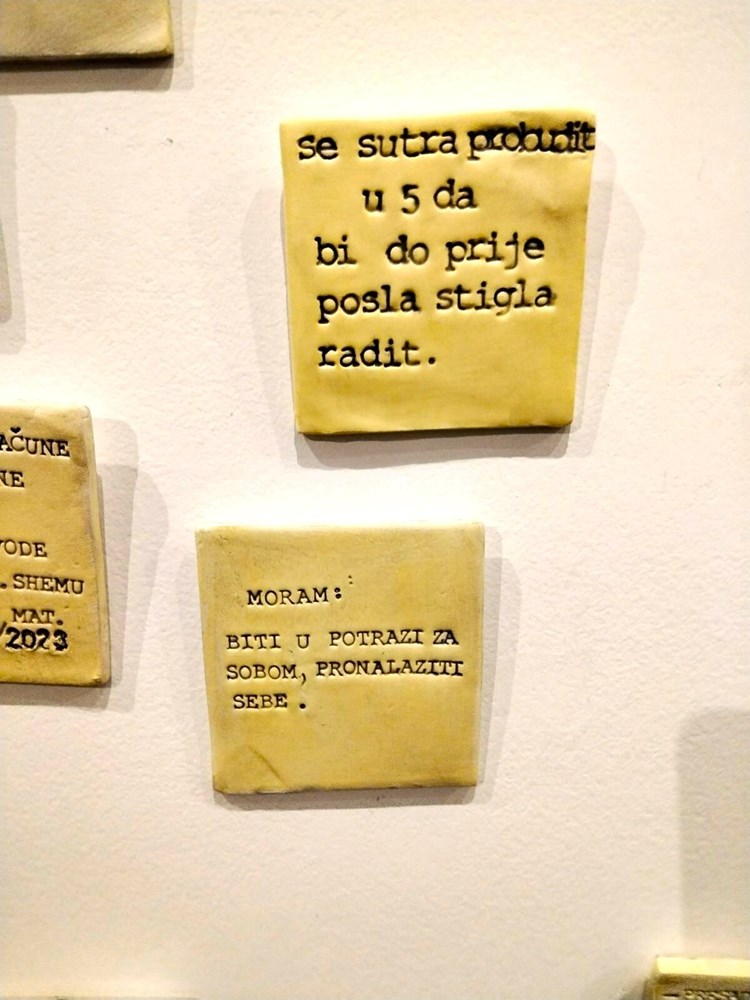 se sutra probudit
u 5 da
bi do prije
posla stigla
radit.
AČUNE
NE
VODE
. SHEMU
MAT.
/2023
MORAM:
BITI U POTRAZI ZA
SOBOM, PRONALAZITI
SEBE .